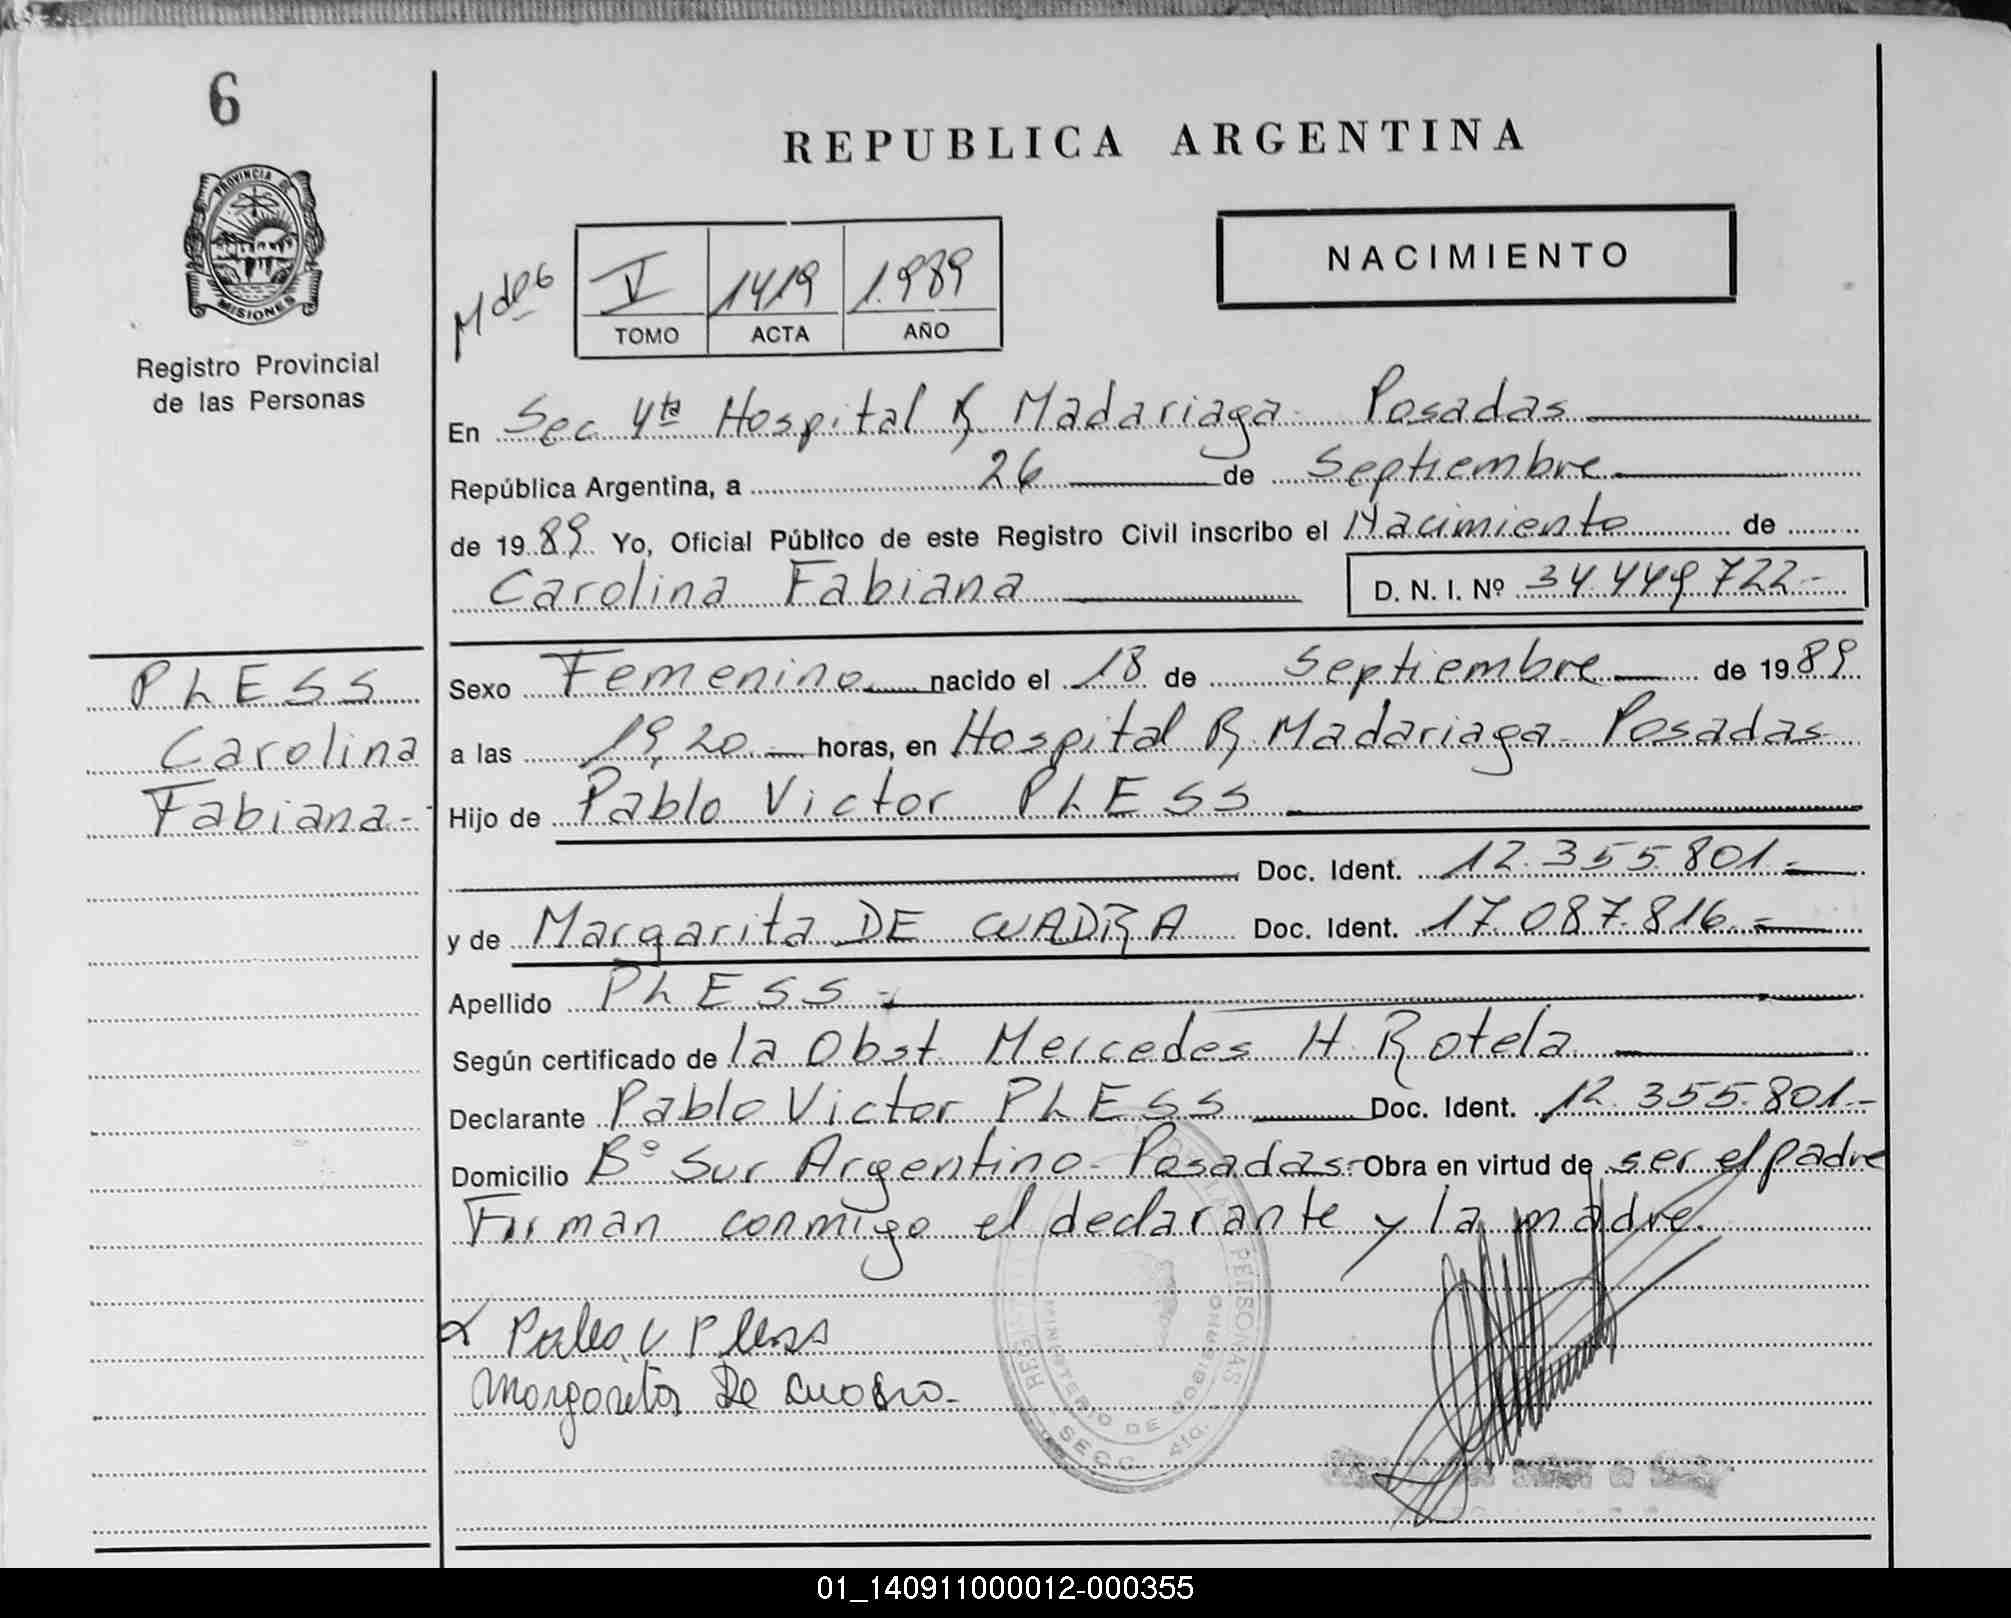 6
PROVINCIA DE
MISIONES
Registro Provincial
de las Personas
REPUBLICA ARGENTINA
NACIMIENTO
V 1419 1.989
TOMO ACTA AÑO
En Sec 4ta Hospital R. Madariaga - Posadas
República Argentina, a 26 de Septiembre
de 1989 Yo, Oficial Público de este Registro Civil inscribo el Nacimiento de
Carolina Fabiana D. N. I. Nº 34.449.722.-
PLESS
Carolina
Fabiana.-
Sexo Femenino nacido el 18 de Septiembre de 1989
a las 19,20.- horas, en Hospital R. Madariaga - Posadas
Hijo de Pablo Victor PLESS
Doc. Ident. 12.355.801.-
y de Margarita DE CUADRA Doc. Ident. 17.087.816.-
Apellido PLESS.-
Según certificado de la Obst. Mercedes H. Rotela
Declarante Pablo Victor PLESS Doc. Ident. 12.355.801.-
Domicilio Bº Sur Argentino - Posadas.- Obra en virtud de ser el padre
Firman conmigo el declarante y la madre.
Pablo V Pless
Margarita De Cuadra.-
PERSONAS
MINISTERIO DE GOBIERNO
SECC. 4ta.
01_140911000012-000355